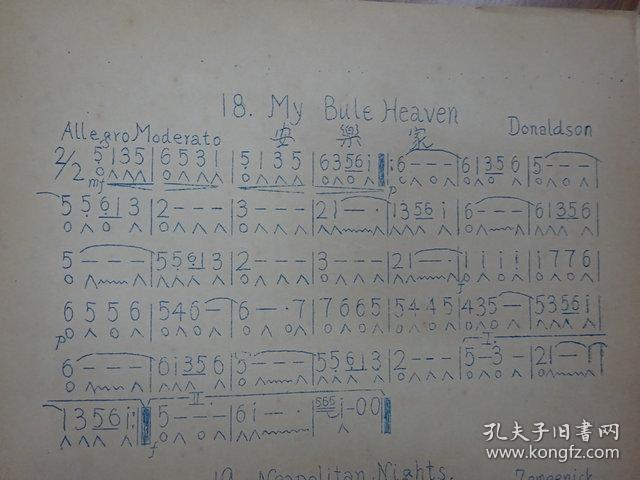 18. My Bule Heaven
Allegro Moderato 安樂家 Donaldson
2/2 5 1 3 5 | 6 5 3 1 | 5 1 3 5 | 6 3 5 6 i |: 6 - - - | 6 1 3 5 6 | 5 - - -
mf p
5 5 6 1 3 | 2 - - - | 3 - - - | 2 1 - · | 1 3 5 6 i | 6 - - - | 6 1 3 5 6
5 - - - | 5 5 6 1 3 | 2 - - - | 3 - - - | 2 1 - · | i i i i | i 7 7 6
f
6 5 5 6 | 5 4 6 - | 6 - · 7 | 7 6 6 5 | 5 4 4 5 | 4 3 5 - | 5 3 5 6 i
p
I.
6 - - - | 6 i 3 5 6 | 5 - - - | 5 5 6 1 3 | 2 - - - | 5 - 3 - | 2 1 - 1
II.
1 3 5 6 i :| 5 - - - | 6 i - · | 5 6 5 i - 0 0
f
19. Neapolitan Nights. Zamecnik
孔夫子旧书网
www.kongfz.com